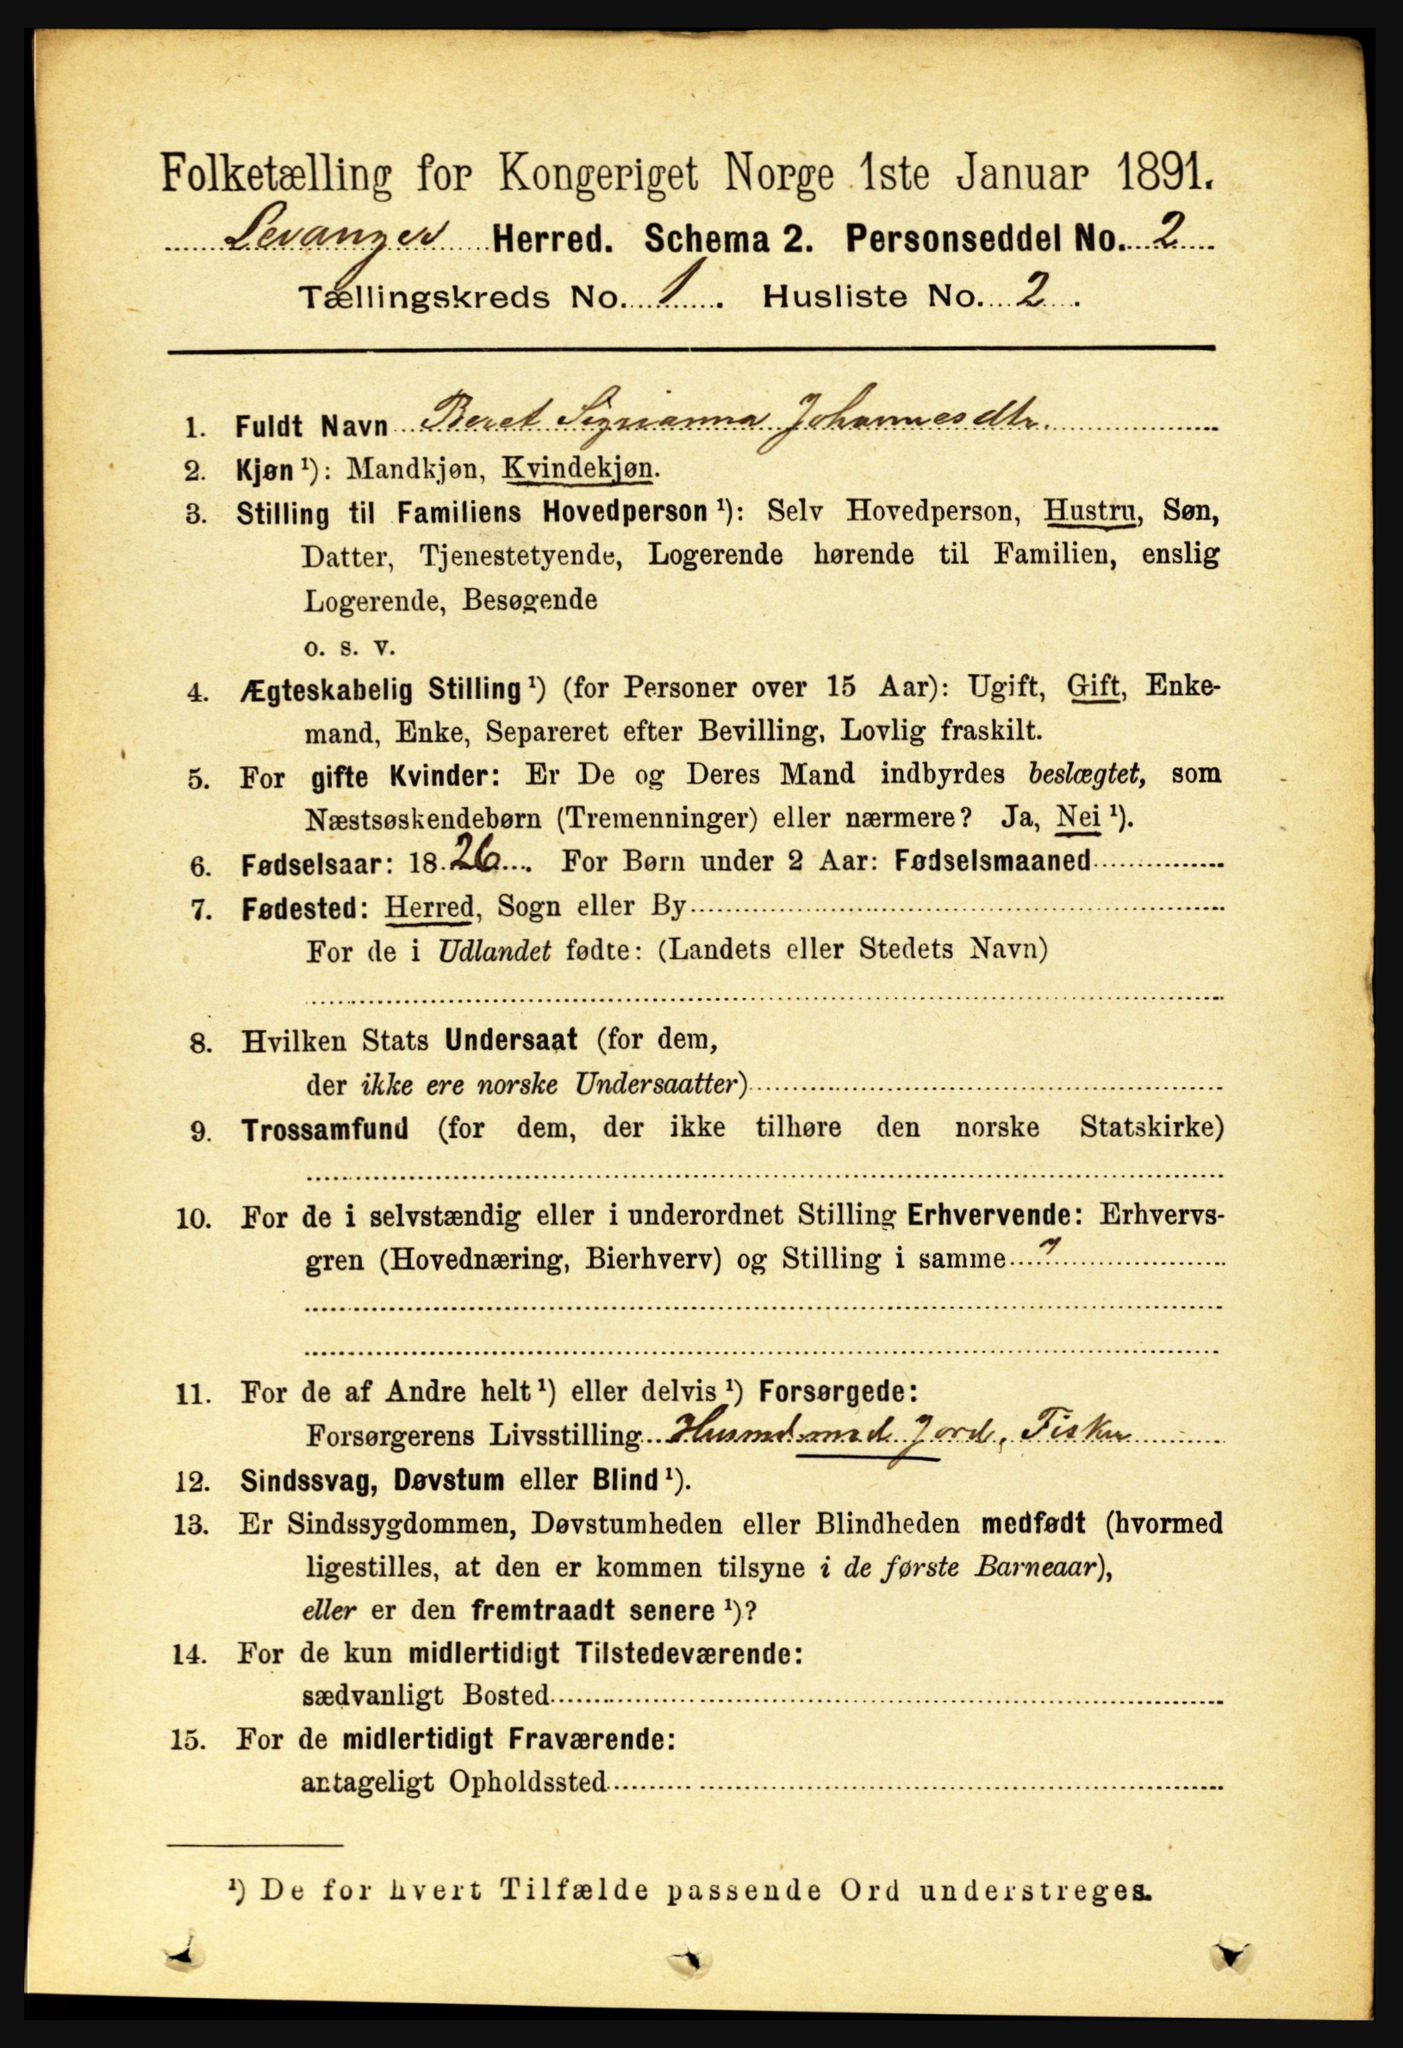 Folketælling for Kongeriget Norge 1ste Januar 1891.
Levanger Herred. Schema 2. Personseddel No. 2
Tællingskreds No. 1. Husliste No. 2.
1. Fuldt Navn Beret Sigrianna Johannesdtr.
2. Kjøn ¹): Mandkjøn, Kvindekjøn.
3. Stilling til Familiens Hovedperson ¹): Selv Hovedperson, Hustru, Søn,
Datter, Tjenestetyende, Logerende hørende til Familien, enslig
Logerende, Besøgende
o. s. v.
4. Ægteskabelig Stilling ¹) (for Personer over 15 Aar): Ugift, Gift, Enke-
mand, Enke, Separeret efter Bevilling, Lovlig fraskilt.
5. For gifte Kvinder: Er De og Deres Mand indbyrdes beslægtet, som
Næstsøskendebørn (Tremenninger) eller nærmere? Ja, Nei ¹).
6. Fødselsaar: 1826. For Børn under 2 Aar: Fødselsmaaned
7. Fødested: Herred, Sogn eller By
For de i Udlandet fødte: (Landets eller Stedets Navn)
8. Hvilken Stats Undersaat (for dem,
der ikke ere norske Undersaatter)
9. Trossamfund (for dem, der ikke tilhøre den norske Statskirke)
10. For de i selvstændig eller i underordnet Stilling Erhvervende: Erhvervs-
gren (Hovednæring, Bierhverv) og Stilling i samme
11. For de af Andre helt ¹) eller delvis ¹) Forsørgede:
Forsørgerens Livsstilling Husmd med Jord, Fisker
12. Sindssvag, Døvstum eller Blind ¹).
13. Er Sindssygdommen, Døvstumheden eller Blindheden medfødt (hvormed
ligestilles, at den er kommen tilsyne i de første Barneaar),
eller er den fremtraadt senere ¹)?
14. For de kun midlertidigt Tilstedeværende:
sædvanligt Bosted
15. For de midlertidigt Fraværende:
antageligt Opholdssted
¹) De for hvert Tilfælde passende Ord understreges.